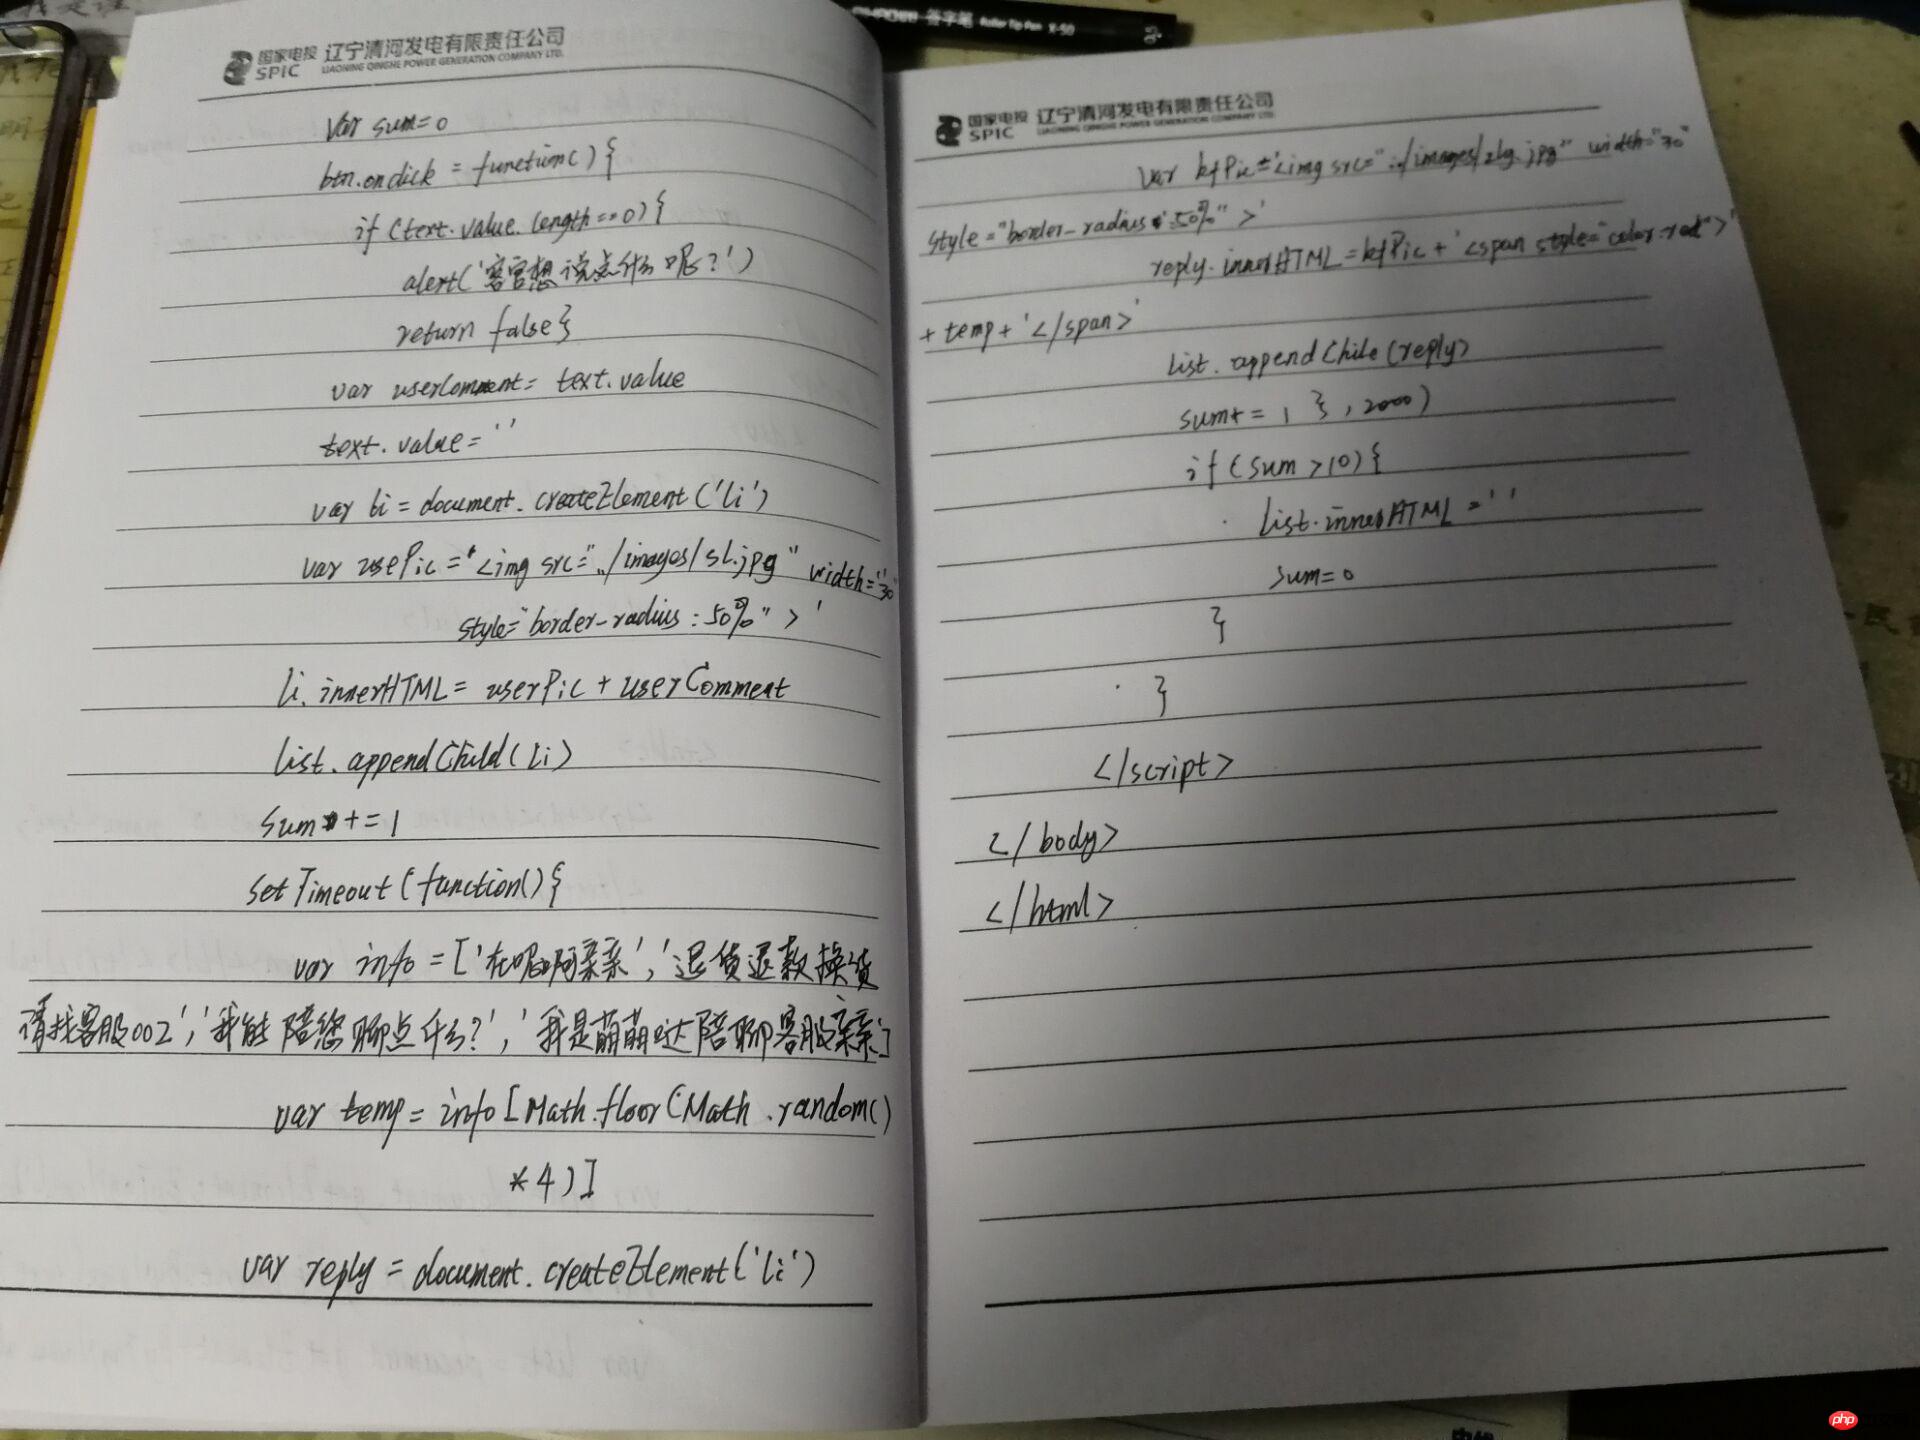 签字笔 Roller Tip Pen X-50
0.5
国家电投 辽宁清河发电有限责任公司
SPIC LIAONING QINGHE POWER GENERATION COMPANY LTD.
var sum=0
btn.onclick = function() {
if (text.value.length==0) {
alert('客官想说点什么呢?')
return false}
var userComment= text.value
text.value=''
var li = document.createElement('li')
var usePic='<img src="../images/sl.jpg" width="30"
style="border-radius:50%">'
li.innerHTML= userPic + userComment
list.appendChild(li)
sum+=1
setTimeout(function(){
var info=['在呢啊亲亲','退货退款换货
请找客服002','我能陪您聊点什么?','我是萌萌哒陪聊客服亲亲']
var temp=info[Math.floor(Math.random()
*4)]
var reply=document.createElement('li')
国家电投 辽宁清河发电有限责任公司
SPIC LIAONING QINGHE POWER GENERATION COMPANY LTD.
var kfPic='<img src="../images/zlg.jpg" width="30"
style="border-radius:50%">'
reply.innerHTML=kfPic+'<span style="color:red">'
+temp+'</span>'
list.appendChile(reply)
sum+=1 },2000)
if(sum>10){
list.innerHTML=''
sum=0
}
}
</script>
</body>
</html>
php